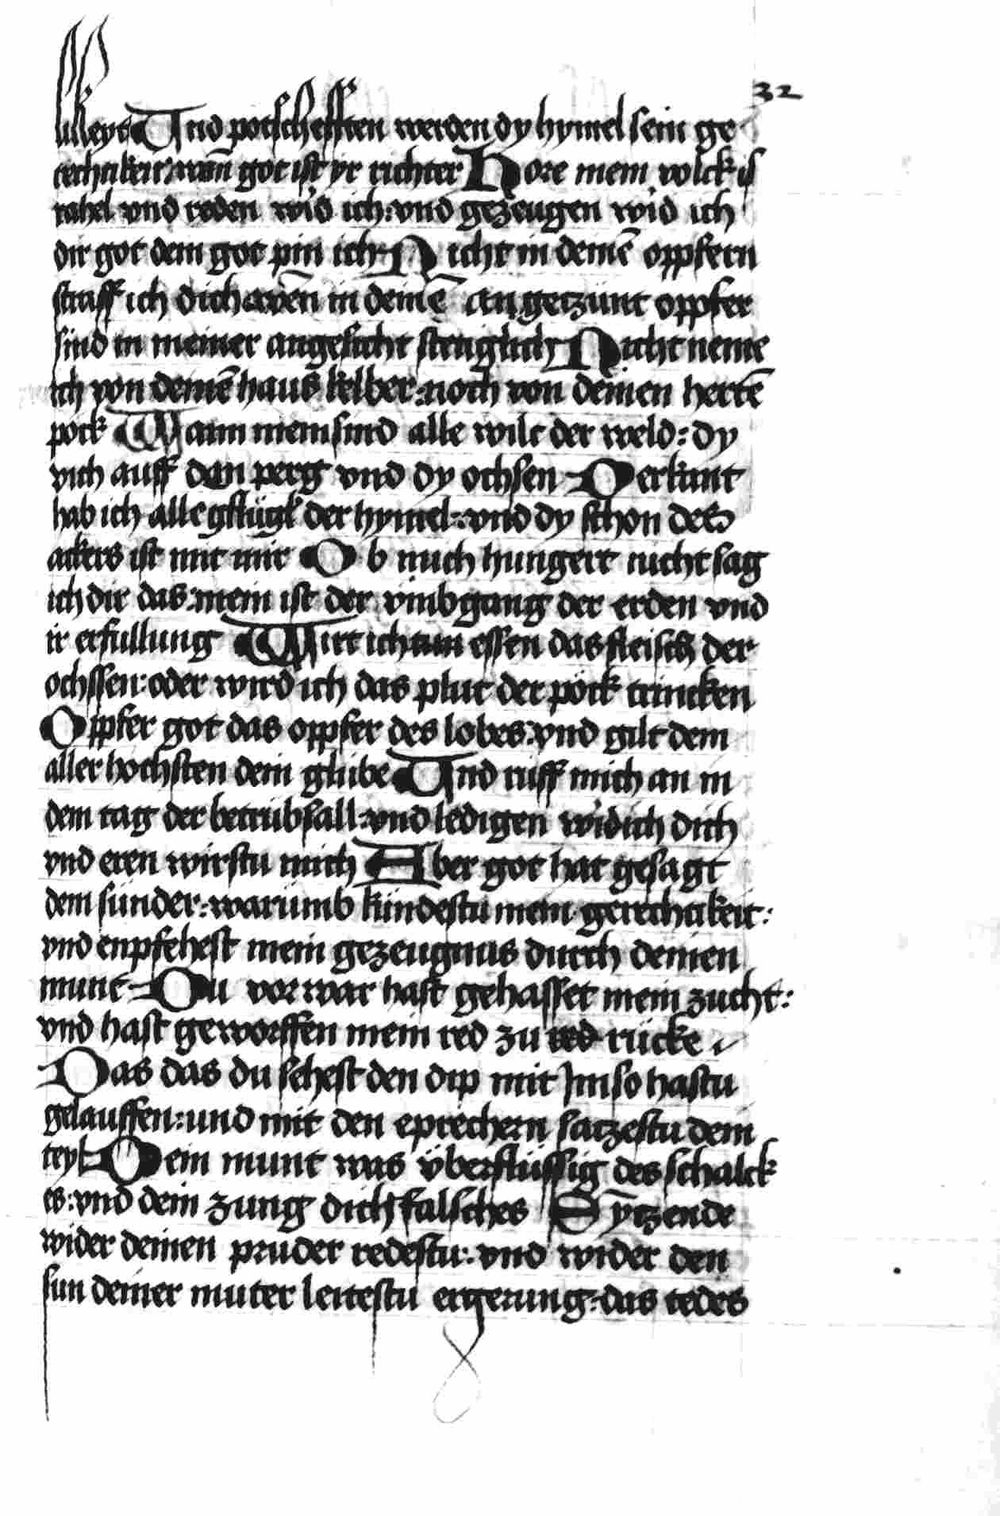 32
Und potschefften werden dy hymel sein ge
rechtikeit: wan̄ got ist yr richter Hore mein volck is
rahel vnd reden wıͤd ich: vnd gezeugen wıͤd ich
dir got dein got pin ich Nicht in deinē oppfern
straff ich dich awēn in deinē an getzünt oppfer
sind in meiner angesicht stetiglich Nicht neme
ich von deinē haus kelber: noch von deinen hertē
pöck Wann mein sind alle wilt der weld: dy
vich auff den perg vnd dy ochsen Derkant
hab ich alle gflügk der hymel: vnd dy schon des
ackers ist mit mir Ob mich hungert nicht sag
ich dir das: mein ist der vmbgang der erden vnd
ir erfullung Wirt ich essen das fleisch der
ochssen: oder wird ich das plut der pöck trincken
Oppfer got das oppfer des lobes: vnd gilt dem
aller hochsten dein glube Und ruff mich an in
dem tag der betrubsall: vnd ledigen wıͤd ich dich
vnd eren wirstu mich Aber got hat gesagt
dem sunder: warumb kündestu mein gerechtikeit:
vnd enpfehest mein gezeugnus durch deinen
munt Du vor war hast gehasset mein zucht:
vnd hast geworffen mein red zu rücke
Das das du sehest den dip mit Im so hastu
gelauffen: und mit den eprechern satzestu dein
teyl Dein munt was überflüssig des schalck
es: vnd dein zung dicht falsches Sytzende
wider deinen pruder redestu: vnd wider den
sun deiner muter leitestu ergerung: das tedes